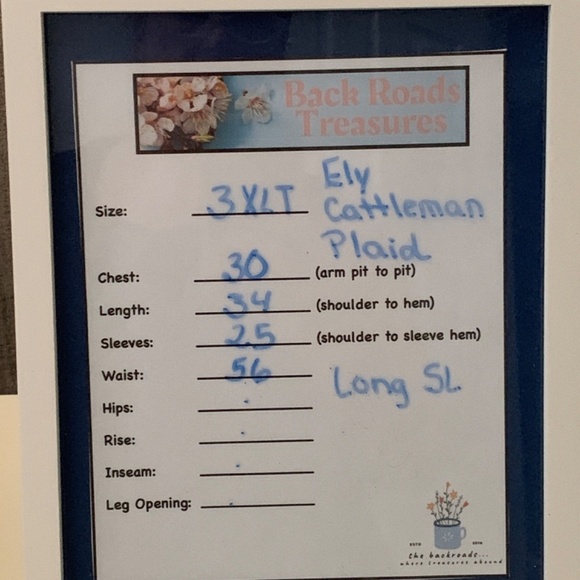 Back Roads
Treasures
Ely
Size: 3XLT Cattleman
Plaid
Chest: 30 (arm pit to pit)
Length: 34 (shoulder to hem)
Sleeves: 25 (shoulder to sleeve hem)
Waist: 56
Long SL
Hips:
Rise:
Inseam:
Leg Opening:
the backroads...
where treasures abound